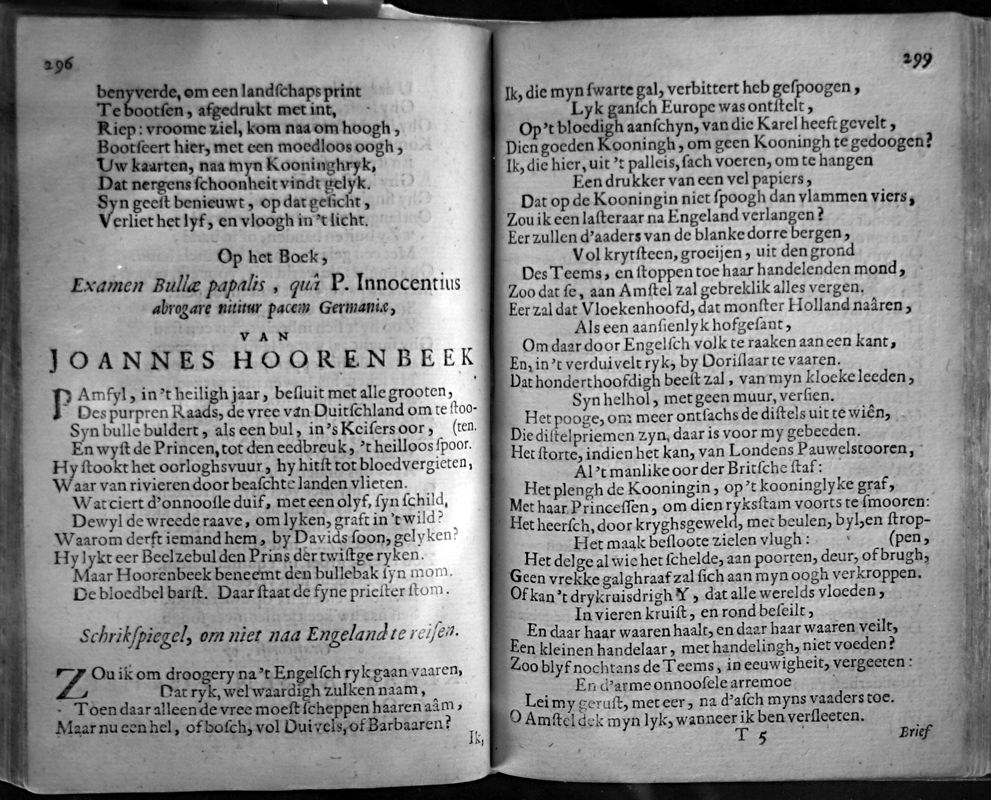 296
benyverde, om een landſchaps print
Te bootſen, afgedrukt met int,
Riep: vroome ziel, kom naa om hoogh,
Bootſeert hier, met een moedloos oogh,
Uw kaarten, naa myn Kooninghryk,
Dat nergens ſchoonheit vindt gelyk.
Syn geeſt benieuwt, op dat geſicht,
Verliet het lyf, en vloogh in 't licht.
Op het Boek,
Examen Bullæ papalis, quâ P. Innocentius
abrogare nititur pacem Germaniæ,
VAN
JOANNES HOORENBEEK
PAmfyl, in 't heiligh jaar, beſluit met alle grooten,
Des purpren Raads, de vree van Duitſchland om te ſtoo-
Syn bulle buldert, als een bul, in 's Keiſers oor, (ten.
En wyſt de Princen, tot den eedbreuk, 't heilloos ſpoor.
Hy ſtookt het oorloghsvuur, hy hitſt tot bloedvergieten,
Waar van rivieren door beaſchte landen vlieten.
Wat ciert d'onnooſle duif, met een olyf, ſyn ſchild,
Dewyl de wreede raave, om lyken, graſt in 't wild?
Waarom derft iemand hem, by Davids ſoon, gelyken?
Hy lykt eer Beelzebul den Prins der twiſtge ryken.
Maar Hoorenbeek beneemt den bullebak ſyn mom.
De bloedbel barſt. Daar ſtaat de fyne prieſter ſtom.
Schrikſpiegel, om niet naa Engeland te reiſen.
ZOu ik om droogery na 't Engelſch ryk gaan vaaren,
Dat ryk, wel waardigh zulken naam,
Toen daar alleen de vree moeſt ſcheppen haaren aâm,
Maar nu een hel, of boſch, vol Duivels, of Barbaaren?
Ik,
299
Ik, die myn ſwarte gal, verbittert heb geſpoogen,
Lyk ganſch Europe was ontſtelt,
Op 't bloedigh aanſchyn, van die Karel heeft gevelt,
Dien goeden Kooningh, om geen Kooningh te gedoogen?
Ik, die hier, uit 't palleis, ſach voeren, om te hangen
Een drukker van een vel papiers,
Dat op de Kooningin niet ſpoogh dan vlammen viers,
Zou ik een laſteraar na Engeland verlangen?
Eer zullen d'aaders van de blanke dorre bergen,
Vol krytſteen, groeijen, uit den grond
Des Teems, en ſtoppen toe haar handelenden mond,
Zoo dat ſe, aan Amſtel zal gebreklik alles vergen.
Eer zal dat Vloekenhoofd, dat monſter Holland naâren,
Als een aanſienlyk hofgeſant,
Om daar door Engelſch volk te raaken aan een kant,
En, in 't verduivelt ryk, by Doriſlaar te vaaren.
Dat honderthoofdigh beeſt zal, van myn kloeke leeden,
Syn helhol, met geen muur, verſien.
Het pooge, om meer ontſachs de diſtels uit te wiên,
Die diſtelpriemen zyn, daar is voor my gebeeden.
Het ſtorte, indien het kan, van Londens Pauwelstooren,
Al 't manlike oor der Britſche ſtaf:
Het plengh de Kooningin, op 't kooninglyke graf,
Met haar Princeſſen, om dien ryksſtam voorts te ſmooren:
Het heerſch, door kryghsgeweld, met beulen, byl, en ſtrop-
Het maak beſloote zielen vlugh: (pen,
Het delge al wie het ſchelde, aan poorten, deur, of brugh,
Geen vrekke galghraaf zal ſich aan myn oogh verkroppen.
Of kan 't drykruisdrigh Y, dat alle werelds vloeden,
In vieren kruiſt, en rond beſeilt,
En daar haar waaren haalt, en daar haar waaren veilt,
Een kleinen handelaar, met handelingh, niet voeden?
Zoo blyf nochtans de Teems, in eeuwigheit, vergeeten:
En d'arme onnooſele arremoe
Lei my geruſt, met eer, na d'aſch myns vaaders toe.
O Amſtel dek myn lyk, wanneer ik ben verſleeten.
T 5
Brief